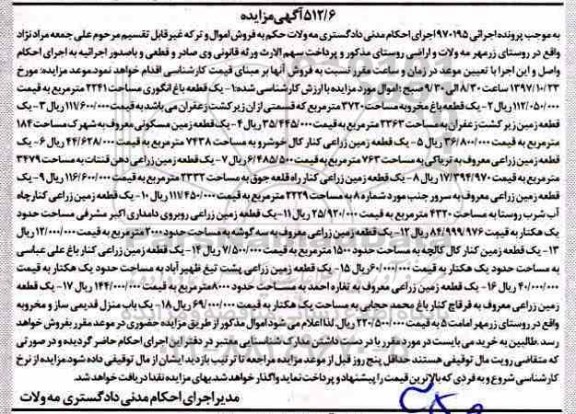 ۵۱۲/۶ آگهی مزایده
به موجب پرونده اجرائی ۹۷۰۱۹۵ اجرای احکام مدنی دادگستری مه ولات حکم به فروش اموال و ترکه غیر قابل تقسیم مرحوم علی جمعه مراد نژاد
واقع در روستای زرمهر مه ولات و اراضی روستای مذکور و پرداخت سهم الارث ورثه قانونی وی صادر و قطعی و باصدور اجرائیه به اجرای احکام
واصل و این اجرا با تعیین موعد در زمان و ساعت مقرر نسبت به فروش آنها بر مبنای قیمت کارشناسی اقدام خواهد نمود. موعد مزایده: مورخ
۱۳۹۷/۱۰/۲۳ ساعت ۸/۳۰ الی ۹/۳۰ صبح؛ اموال مورد مزایده با ارزش کارشناسی شده: ۱- یک قطعه باغ انگوری مساحت ۲۲۴۱ مترمربع به قیمت
۱۱۲/۰۵۰/۰۰۰ ریال ۲- یک قطعه باغ مخروبه مساحت ۳۷۲۰ مترمربع که قسمتی از ان زیر کشت زعفران می باشد به قیمت ۱۱۷/۶۰۰/۰۰۰ ریال ۳- یک
قطعه زمین زیر کشت زعفران به مساحت ۲۳۶۳ مترمربع به قیمت ۳۵/۴۴۵/۰۰۰ ریال ۴- یک قطعه زمین مسکونی معروف به شهرک مساحت ۱۸۴
مترمربع به قیمت ۳۶/۸۰۰/۰۰۰ ریال ۵- یک قطعه زمین زراعی کنار کال خوشرو به مساحت ۷۴۳۸ مترمربع به قیمت ۴۴/۶۲۸/۰۰۰ ریال ۶- یک
قطعه زمین زراعی معروف به تریاکی به مساحت ۷۶۳ مترمربع به قیمت ۶/۴۸۵/۵۰۰ ریال ۷- یک قطعه زمین زراعی دهن قنات به مساحت ۳۴۷۹
مترمربع به قیمت ۱۷/۳۹۴/۹۷۰ ریال ۸- یک قطعه زمین زراعی کنار راه قلعه جوق به مساحت ۲۳۳۲ مترمربع به قیمت ۱۱۶/۶۰۰/۰۰۰ ریال ۹- یک
قطعه زمین زراعی معروف به سرور جنب مورد شماره ۸ به مساحت ۲۲۲۹ مترمربع به قیمت ۱۱۱/۴۵۰/۰۰۰ ریال ۱۰- یک قطعه زمین زراعی کنار چاه
آب شرب روستا به مساحت ۴۳۲۰ مترمربع به قیمت ۲۵/۹۲۰/۰۰۰ ریال ۱۱- یک قطعه زمین زراعی روبروی دامداری اکبر مشرفی مساحت حدود
یک هکتار به قیمت ۸۴/۹۹۹/۹۷۶ ریال ۱۲- یک قطعه زمین زراعی معروف به سه گوشه به مساحت حدود ۲۰۰۰ مترمربع به قیمت ۱۲/۰۰۰/۰۰۰ ریال
۱۳- یک قطعه زمین کنار کال کالچه به مساحت حدود ۱۵۰۰ مترمربع به قیمت ۷/۵۰۰/۰۰۰ ریال ۱۴- یک قطعه زمین زراعی کنار باغ علی عباسی
به مساحت حدود یک هکتار به قیمت ۶۰/۰۰۰/۰۰۰ ریال ۱۵- یک قطعه زمین زراعی پشت تیغ ظهیر آباد به مساحت حدود یک هکتار به قیمت
۴۰/۰۰۰/۰۰۰ ریال ۱۶- یک قطعه زمین زراعی معروف به نقاره احمد به مساحت حدود ۸۰۰۰ مترمربع به قیمت ۱۴۴/۰۰۰/۰۰۰ ریال ۱۷- یک قطعه
زمین زراعی معروف به قرقاچ کنار باغ محمد حجابی به مساحت یک هکتار به قیمت ۶۹/۰۰۰/۰۰۰ ریال ۱۸- یک باب منزل قدیمی ساز و مخروبه
واقع در روستای زرمهر امامت ۵ به قیمت ۲۲۰/۵۰۰/۰۰۰ ریال. لذا اعلام می شود اموال مذکور از طریق مزایده حضوری در موعد مقرر بفروش خواهد
رسد. طالبین به خرید می بایست در مورد مقرر با در دست داشتن مدارک شناسایی معتبر در دفتر این اجرای احکام حاضر گردیده و در صورتی که
متقاضی رویت مال توقیفی هستند حداقل پنج روز قبل از موعد مزایده مراجعه تا ترتیب بازدید ایشان از مال توقیفی داده شود. مزایده از نرخ
کارشناسی شروع و به فردی که بالاترین قیمت را پیشنهاد و پرداخت نماید واگذار خواهد شد. بهای مزایده نقدا دریافت خواهد شد.
مدیر اجرای احکام مدنی دادگستری مه ولات